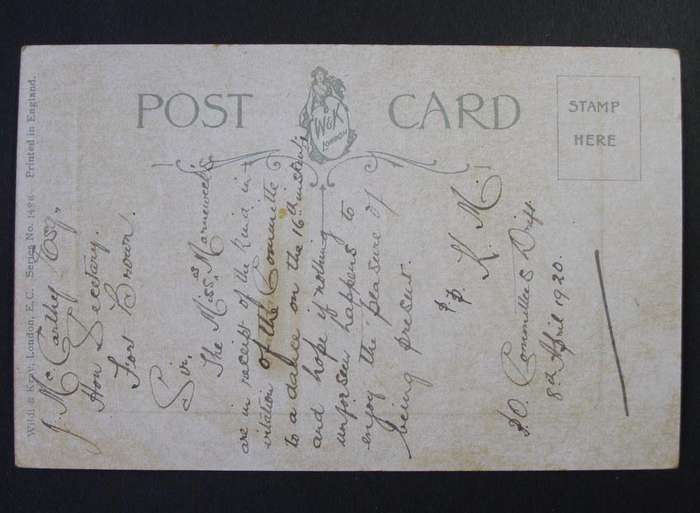 POST CARD
W&K
LONDON
STAMP
HERE
Wildt & Kray, London, E. C. Series No. 1496. Printed in England.
J. McCarthy Esq.,
Hon Secetary.
Fort Brown.
Sir,
The Misses
are in receipt of the kind in-
vitation of the Committe
to a dance on the 16th instant.
and hope if nothing
unforseen happens to
enjoy the pleasure of
being present.
pp. K. M.
P.O. Committee's Drift
8th April 1920.